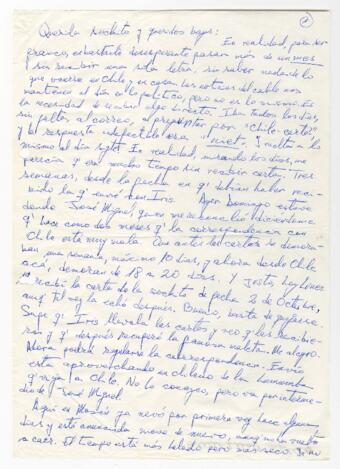 Querida sochita y queridos bajos:
En realidad, para ser
franco, es bastante desesperante pasar más de un mes
sin recibir una sola letra, sin saber nada de lo
que ocurre en Chile y en casa. Las noticias del cable nos
mantienen al día en lo político, pero no es lo mismo. Es
la necesidad de recibir algo directo. Iba todos los días,
sin falta, al correo, al preguntar por "Chile-cartas"
y la respuesta indefectible era "niet". Y vuelta a lo
mismo al día sgte. En realidad, mirando los días, me
parecía q' era mucho tiempo sin recibir cartas. Tres
semanas, desde la fecha en q' debían haber re-
cibido la q' envié con Iris. Ayer Domingo estuve
donde José Miguel, quien me consoló diciéndome
q' hace como dos meses q' la correspondencia con
Chile está muy mala. Que antes las cartas se demora-
ban una semana, máximo 10 días, y ahora desde Chile
acá, demoran de 18 a 20 días. Y justo hoy lunes
recibí la carta de la sochita de fecha 2 de Octubre,
aunq' tal vez la echó después. Bueno, basta de quejarse.
Supe q' Iris llevaba las cartas y veo q' las recibie-
ron y q' después recuperó la famosa maleta. Me alegro.
Ahora podré regularizar la correspondencia. Envío
esta aprovechando un chileno de la
q' viaja a Chile. No lo conozco, pero va por interme-
dio de José Miguel.
Aquí en Moscú ya nevó por primera vez hace algunos
días y está amenazando nieve de nuevo, muy
a caer. El tiempo está más helado pero más seco.